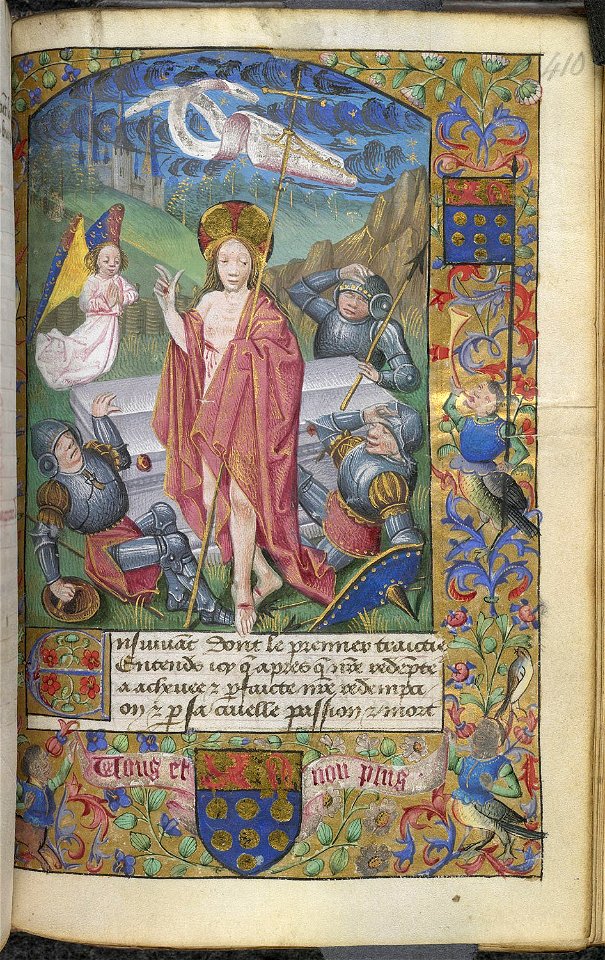 410
Ensuivāt dont le premier traictie
Entends icy q̄ apres q̄ nr̄e redēpte
a acheuee ⁊ ꝑfaicte nr̄e redempti
on ⁊ ꝑ sa cruelle passion ⁊ mort
Vous et non plus